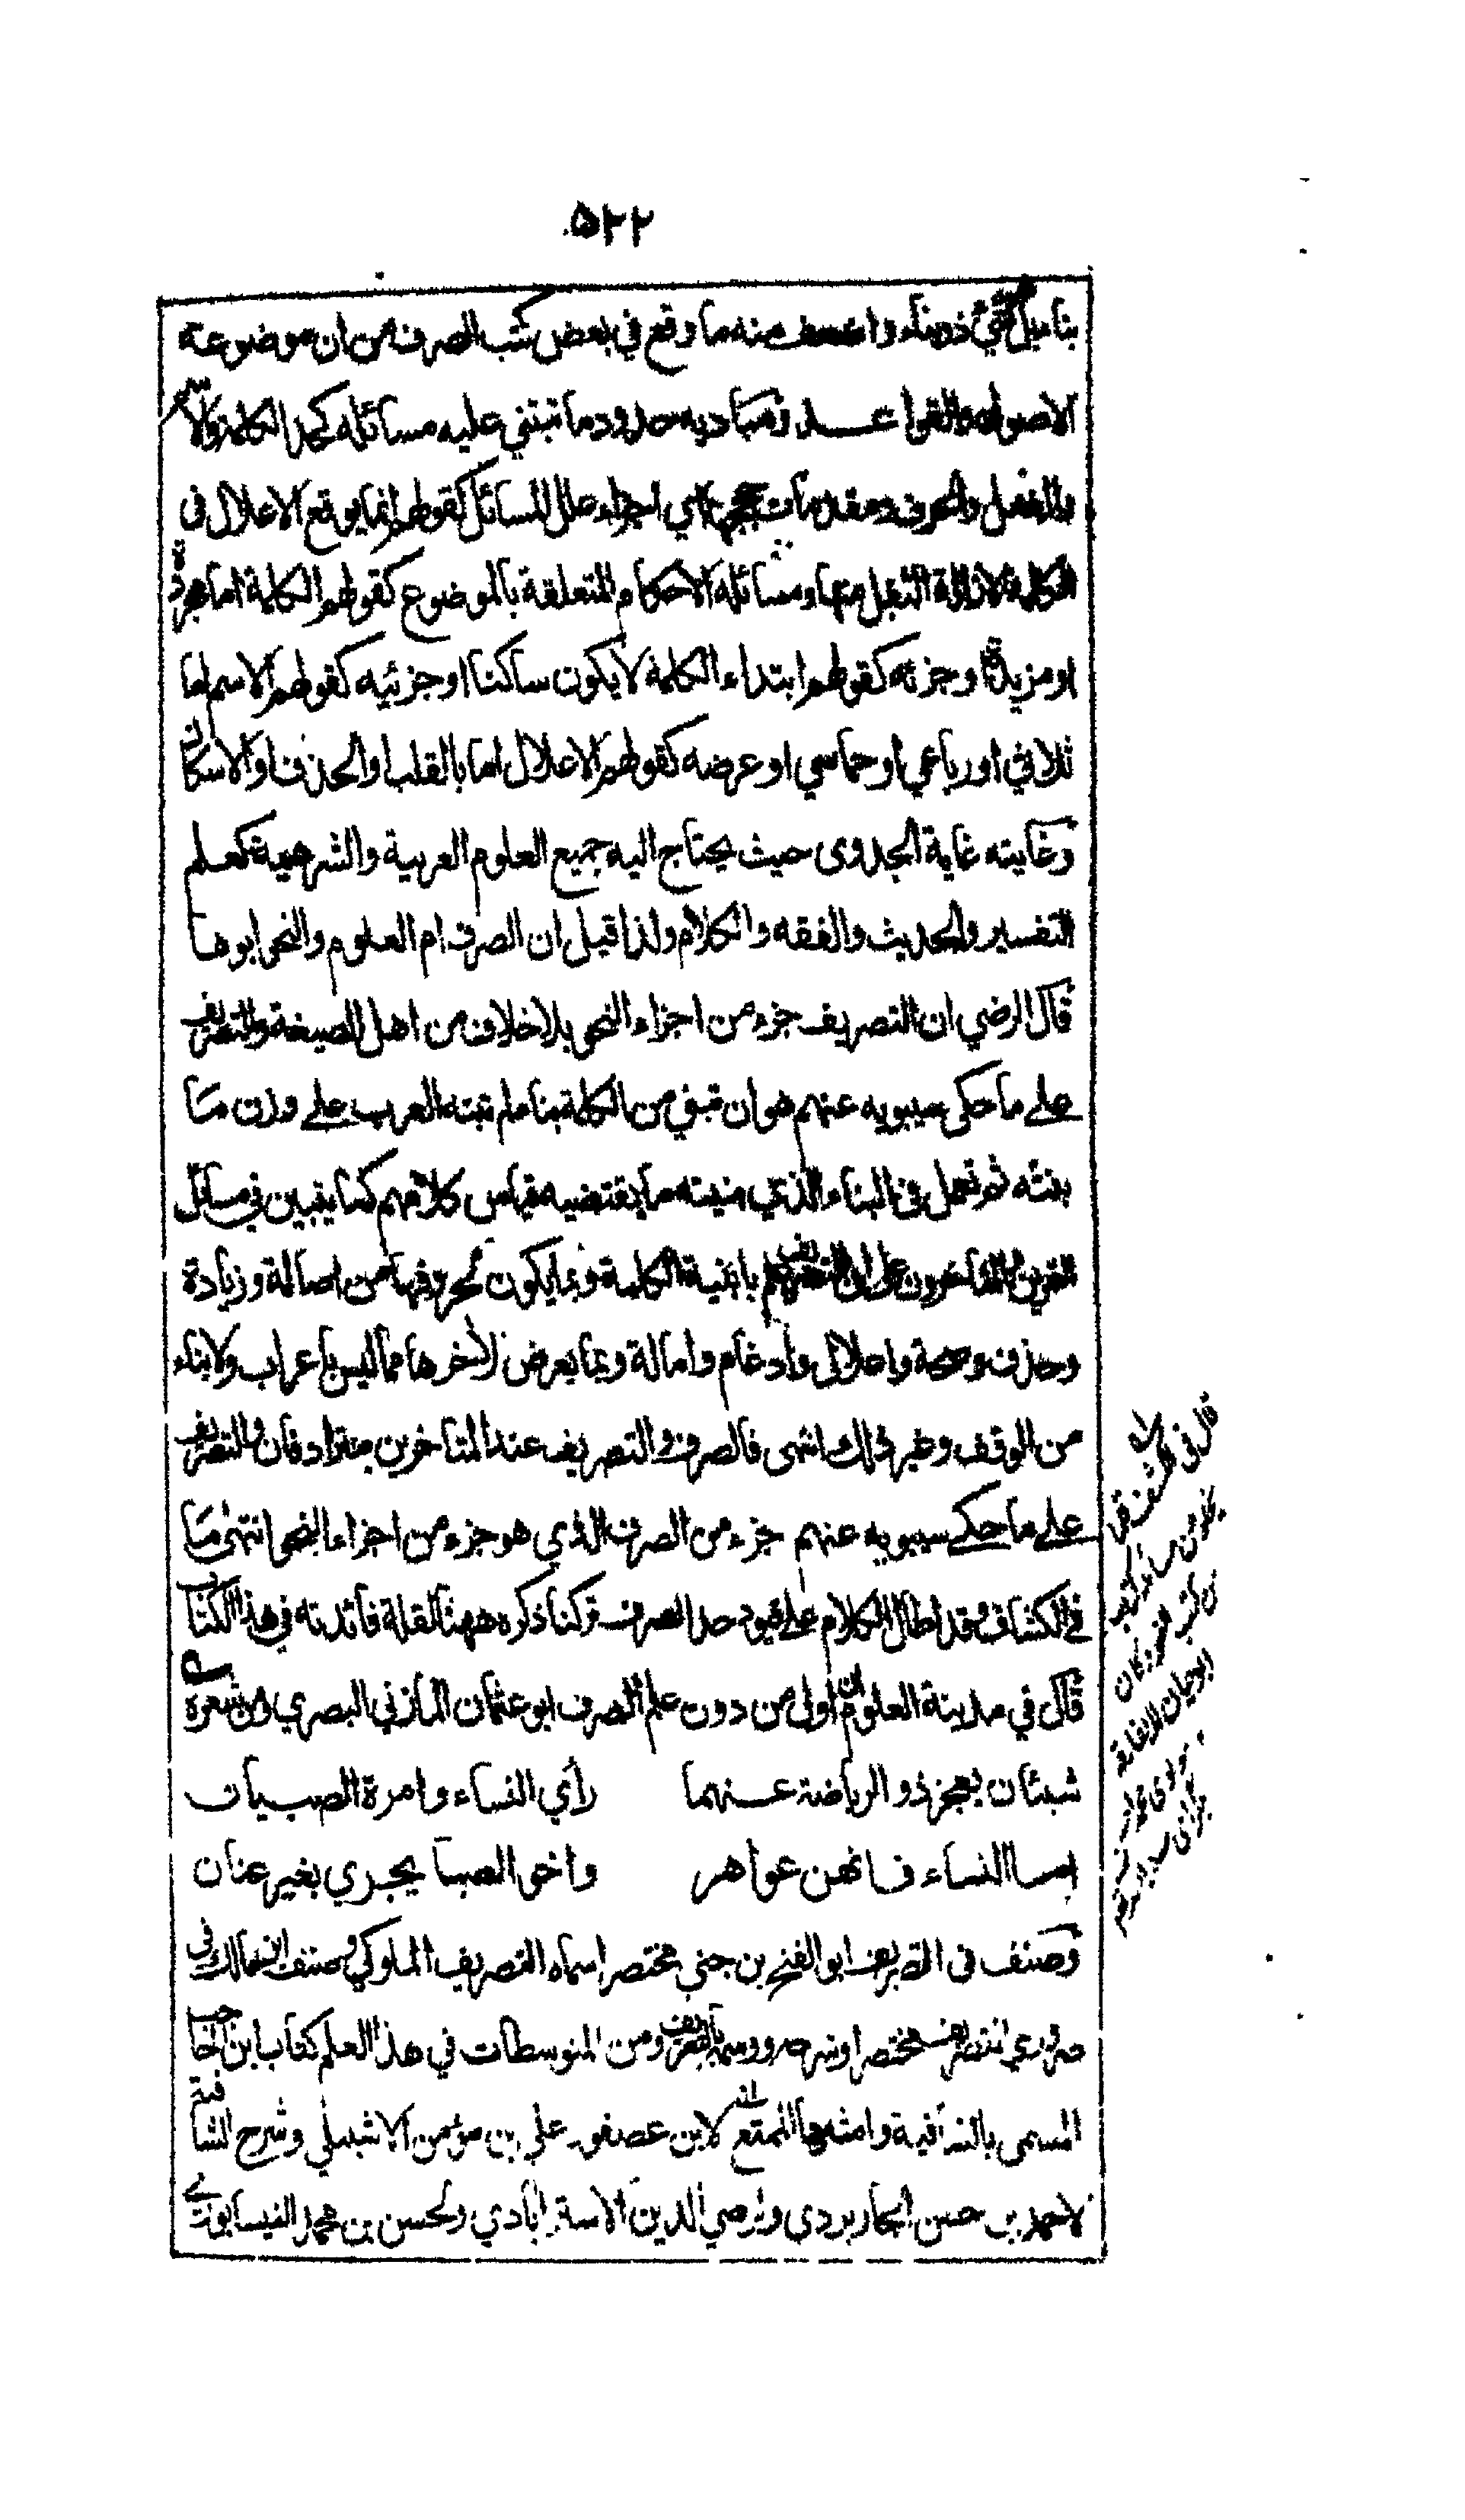 ٥٢٢
بناء من ما وقع في بعض كتب الصرف من ان موضوعه
الاصول والقواعد ومباديه حدود ما تبتني عليه مسائله كحد الكلمة والاسم
والفعل والحرف ومقدمات حججها اي اجزاء علل المسائل كقولهم انما يوقع الاعلال في
الكلمة لازالة الثقل منها ومسائله الاحكام المتعلقة بالموضوع كقولهم الكلمة اما مجردة
او مزيدة او جزئه كقولهم ابتداء الكلمة لا يكون ساكنا او جزئيه كقولهم الاسم اما
ثلاثي او رباعي او خماسي او عرضه كقولهم الاعلال اما بالقلب او الحذف او الاسكان
وغايته غاية الجدوى حيث يحتاج اليه جميع العلوم العربية والشرعية كعلم
التفسير والحديث والفقه والكلام ولذا قيل ان الصرف ام العلوم والنحو ابوها
قال الرضي ان التصريف جزء من اجزاء النحو بلا خلاف من اهل الصيغة والتصريف
على ما حكى سيبويه عنهم هو ان تبني من الكلمة بناء لم تبنه العرب على وزن ما
بنته ثم تعمل في البناء الذي بنيته ما يقتضيه قياس كلامهم كما يتبين في مسائل
التمرين والمتاخرون على ان التصريف علم بابنية الكلمة وبما يكون لحروفها من اصالة وزيادة
وحذف وصحة واعلال وادغام وامالة وبما يعرض لآخرها مما ليس باعراب ولا بناء
من الوقف وغير ذلك انتهى فالصرف والتصريف عند المتاخرين مترادفان والتصريف
على ما حكى سيبويه عنهم جزء من الصرف الذي هو جزء من اجزاء النحو انتهى ما
في الكشاف وقد اطال الكلام على قيود حد الصرف تركنا ذكره ههنا لقلة فائدته في هذا الكتاب
قال في مدينة العلوم ان اول من دون علم الصرف ابو عثمان المازني البصري ومن شعره
شيئان يعجز ذو الرياضة عنهما رأي النساء وامرة الصبيان
اما النساء فانهن عواهر واخو الصبا يجري بغير عنان
وصنف في التصريف ابو الفتح بن جني مختصرا سماه التصريف الملوكي وصنف ابن مالك في
ضروري التصريف مختصرا وشرحه وسماه بالتعريف ومن المتوسطات في هذا العلم كتاب ابن الحاجب
المسمى بالشافية وامثلها الممتع لابن عصفور علي بن مؤمن الاشبيلي وشرح الشافية
لاحمد بن حسن الجاربردي ولرضي الدين الاسترابادي ولحسن بن محمد النيسابوري